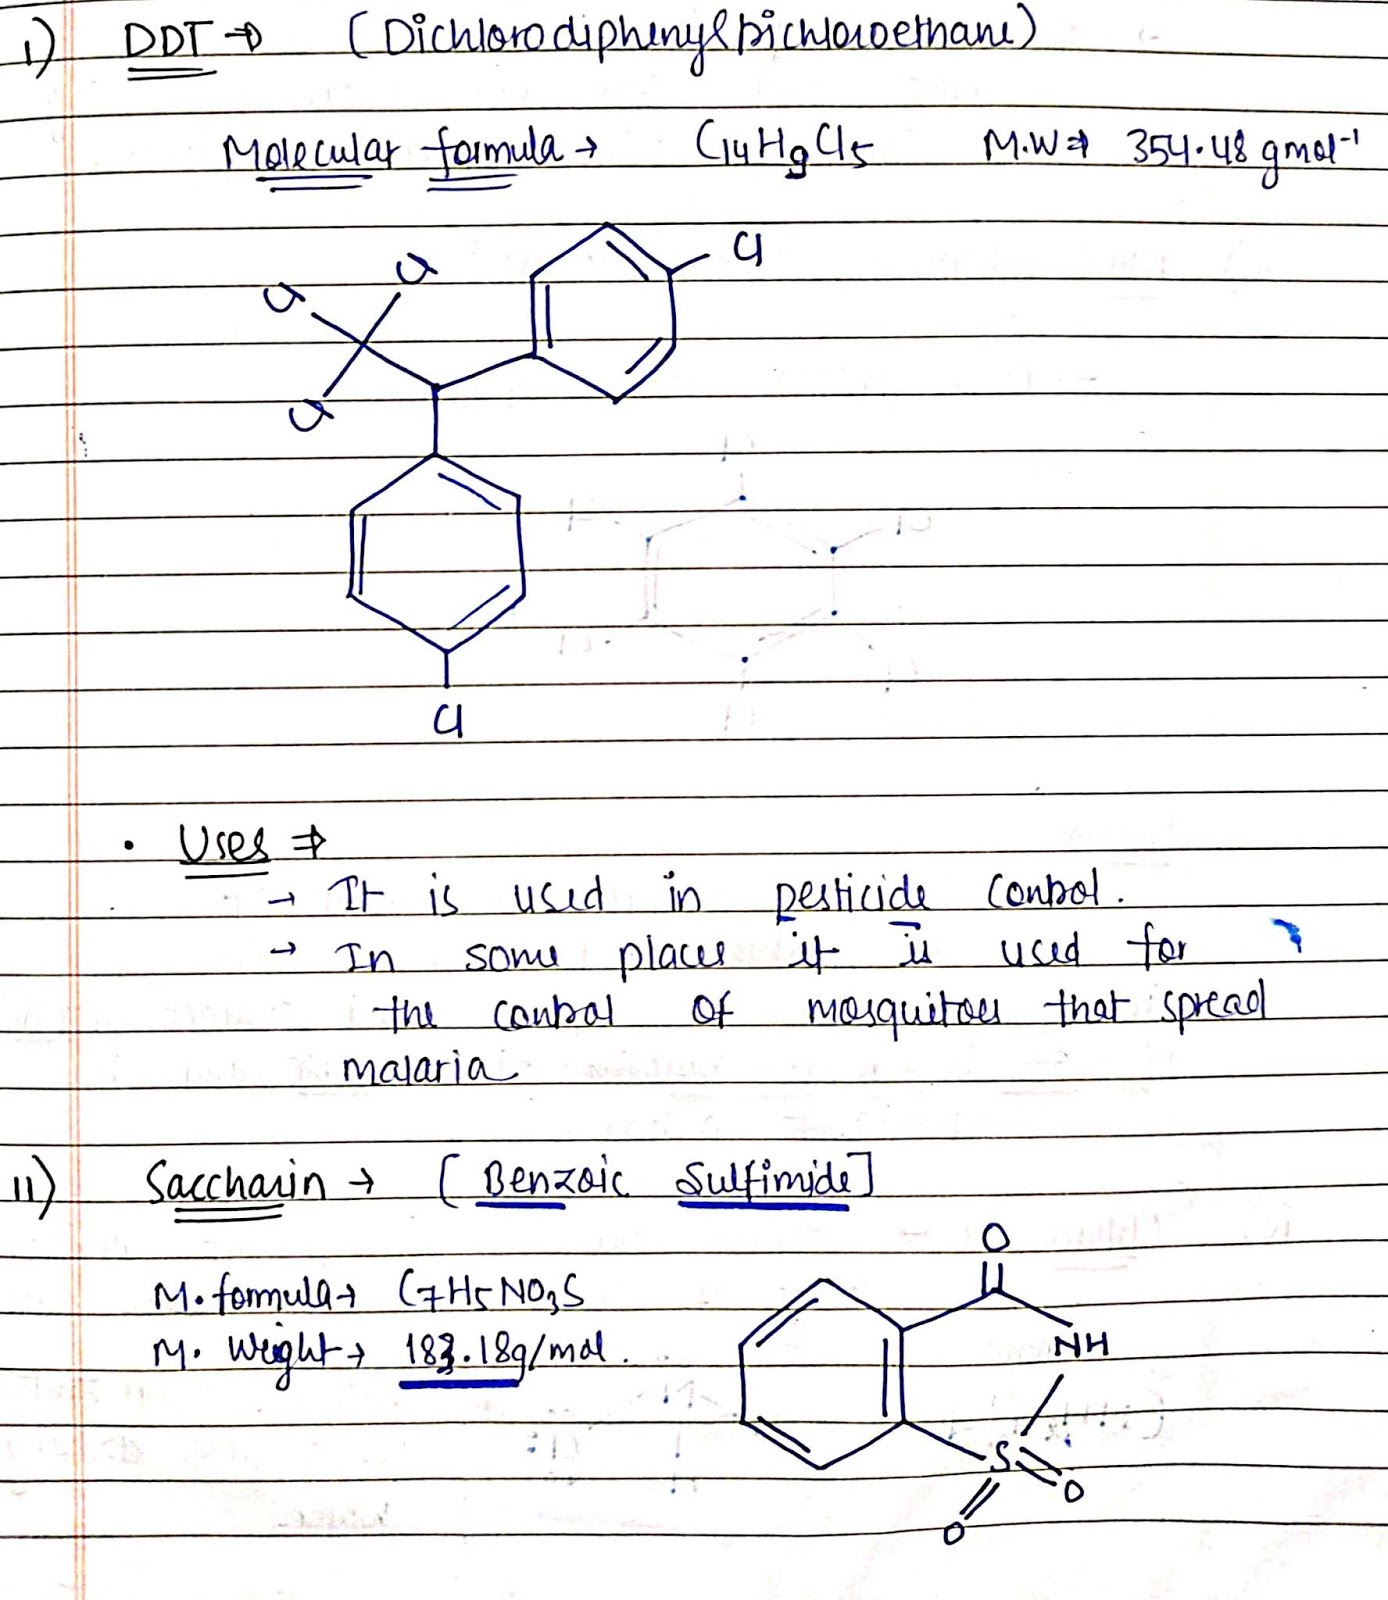 1) DDT → (Dichlorodiphenyltrichloroethane)
Molecular formula → C14H9Cl5 M.W → 354.48 gmol-1
Cl
Cl
Cl
Cl
Cl
• Uses ⇒
→ It is used in pesticide control.
→ In some places it is used for
the control of mosquitoes that spread
malaria
11) Saccharin → [Benzoic Sulfimide]
O
M. formula → C7H5NO3S
NH
M. Weight → 183.18g/mol.
S
O
O